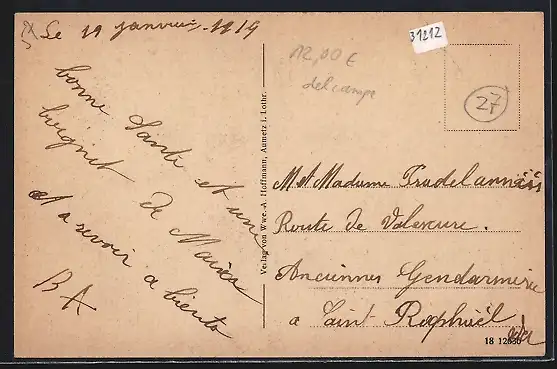 Le 19 janvier 1919
bonne Santé et une
de
et a revoir a bientot
B A
Verlag von Wwe. A. Hoffmann, Aumetz i. Lothr.
31212
12,00 €
delcampe
27
M et Madame
Route de Valescure.
Anciennes Gendarmerie
a Saint Raphaël
18 12630